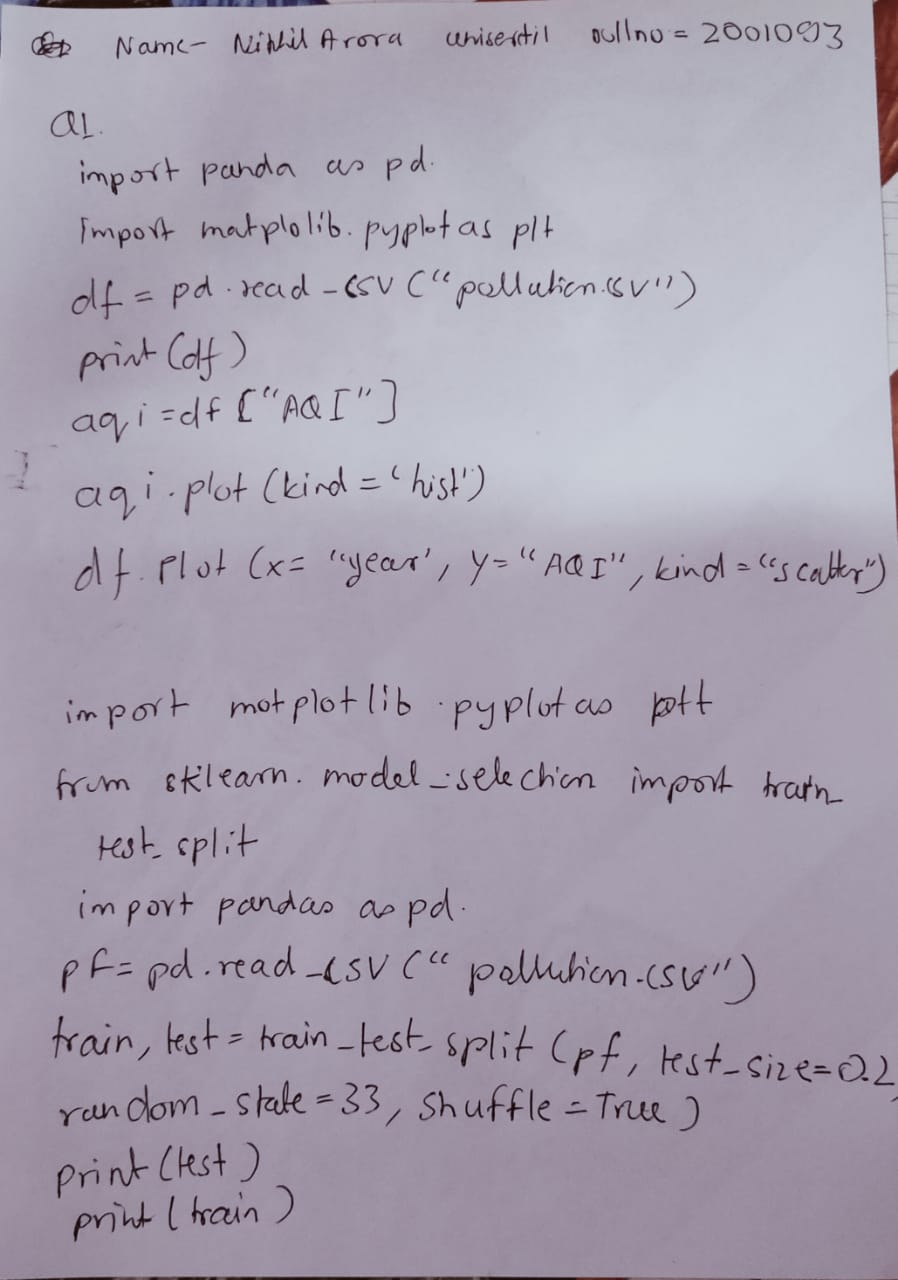 Name- Nikhil Arora rollno = 2001093
Q1.
import panda as pd.
Import matplolib. pyplot as plt
df = pd . read - csv (“pollution.csv”)
print (df)
aqi = df [“AQI”]
aqi . plot (kind = ‘hist’)
df. Plot (x= “year’, y=“AQI”, kind = “scatter”)
import motplotlib . pyplot as plt
from sklearn. model - selection import train_
test_ split
import pandas as pd.
pf= pd . read _csv (“ pollution.csv”)
train, test = train _test_ split (pf, test_size=0.2,
random _ state = 33, Shuffle = True )
print (test )
print ( train )